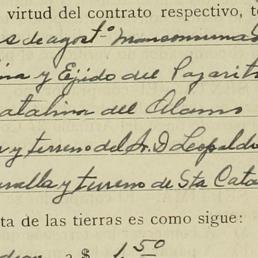 virtud del contrato respectivo, t
s de agost.º mancomunad
ina y Ejido del Pajarit
atalina del Alamo
a y terreno del Sr. D Leopoldo
valla y terreno de Sta Cata
ta de las tierras es como sigue:
a $ 1.50